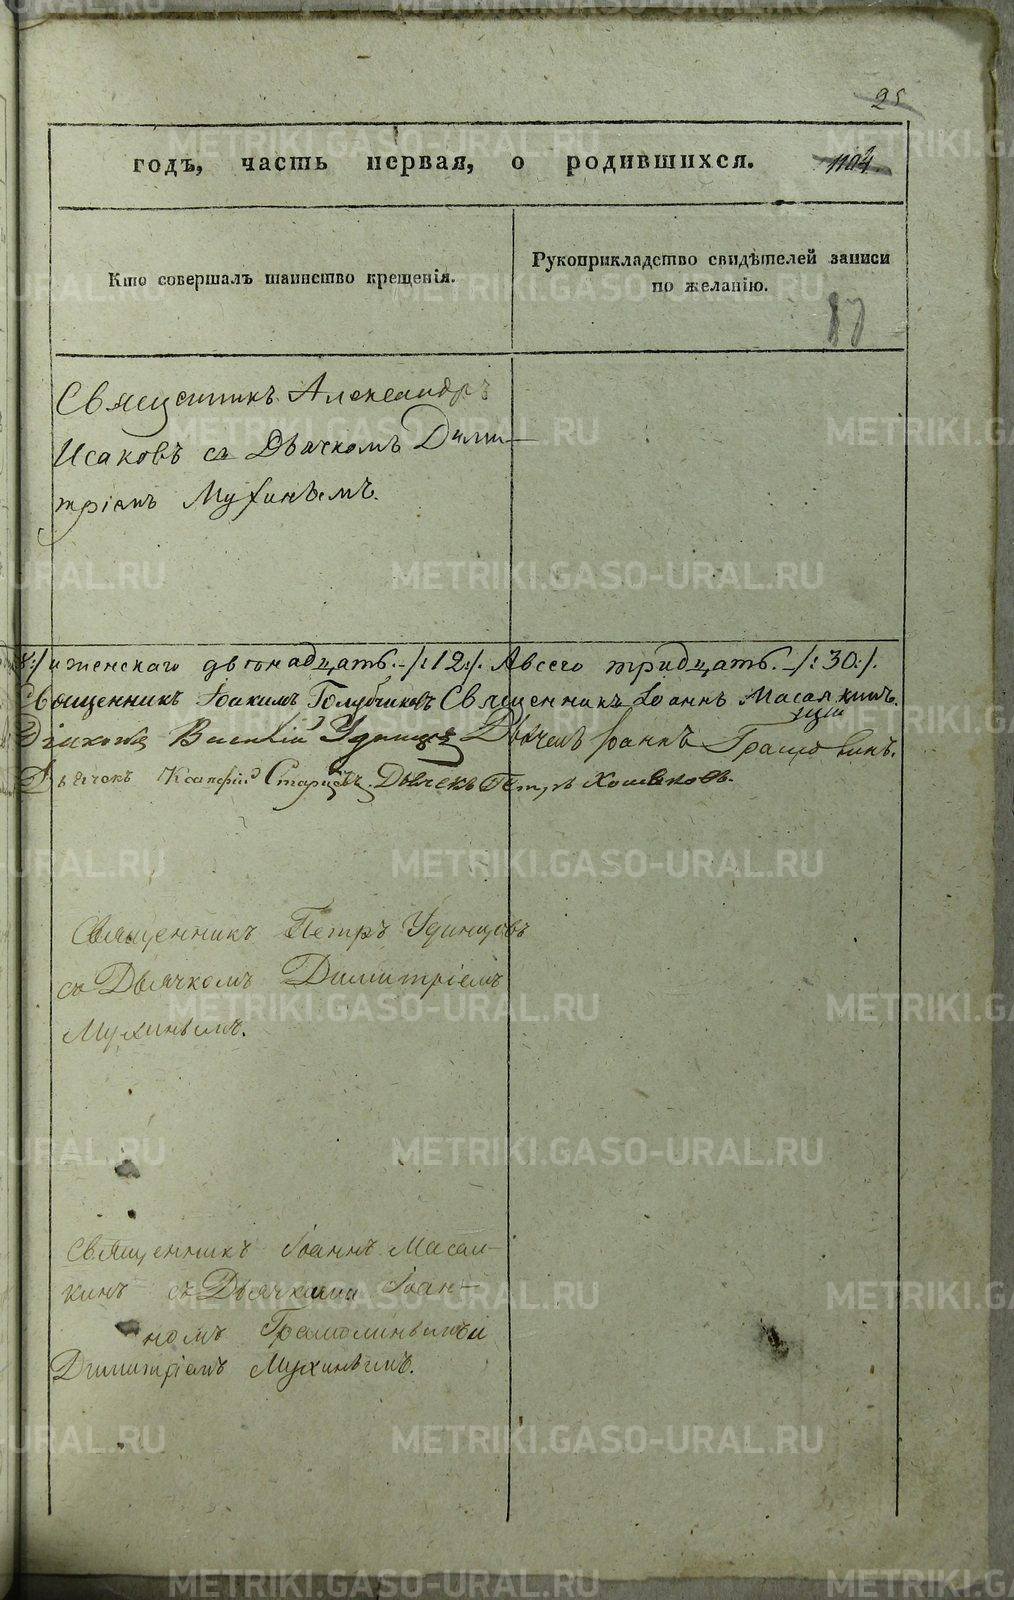 25
годъ, часть первая, о родившихся. 1104
Кто совершалъ таинство крещенія.
Рукоприкладство свидѣтелей записи
по желанію.
87
Священникъ Александръ
Исаковъ съ Дьячкомъ Дими-
тріемъ Мухинымъ.
8:/ и женскаго двѣнадцать. /:12:/. А всего тридцать. /:30:/.
Священникъ Іоакимъ Голубчиковъ Священникъ Іоаннъ Масалкинъ.
Діаконъ Василій Удинцовъ Дьячекъ Іоаннъ
Дьячекъ Старцовъ. Дьячекъ Петръ Хомяковъ.
Священникъ Петръ Удинцовъ
съ Дьячкомъ Димитріемъ
Мухинымъ.
Священникъ Іоаннъ Масал-
кинъ съ Дьячками Іоан-
номъ и
Димитріемъ Мухинымъ.
METRIKI.GASO-URAL.RU